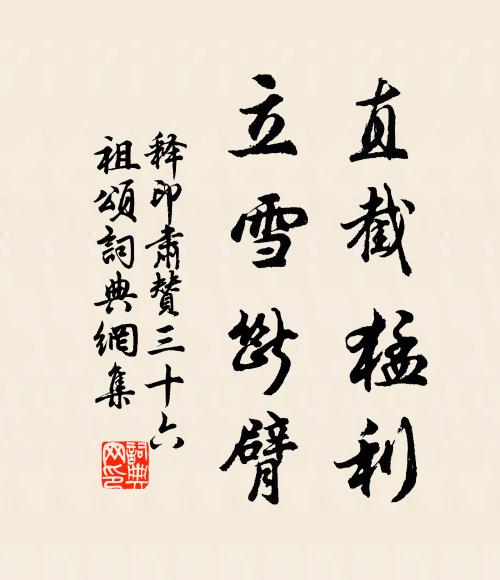 直截猛利
立雪斷臂
释印肅赞三十六
祖頌詞典網集
詞典
网印